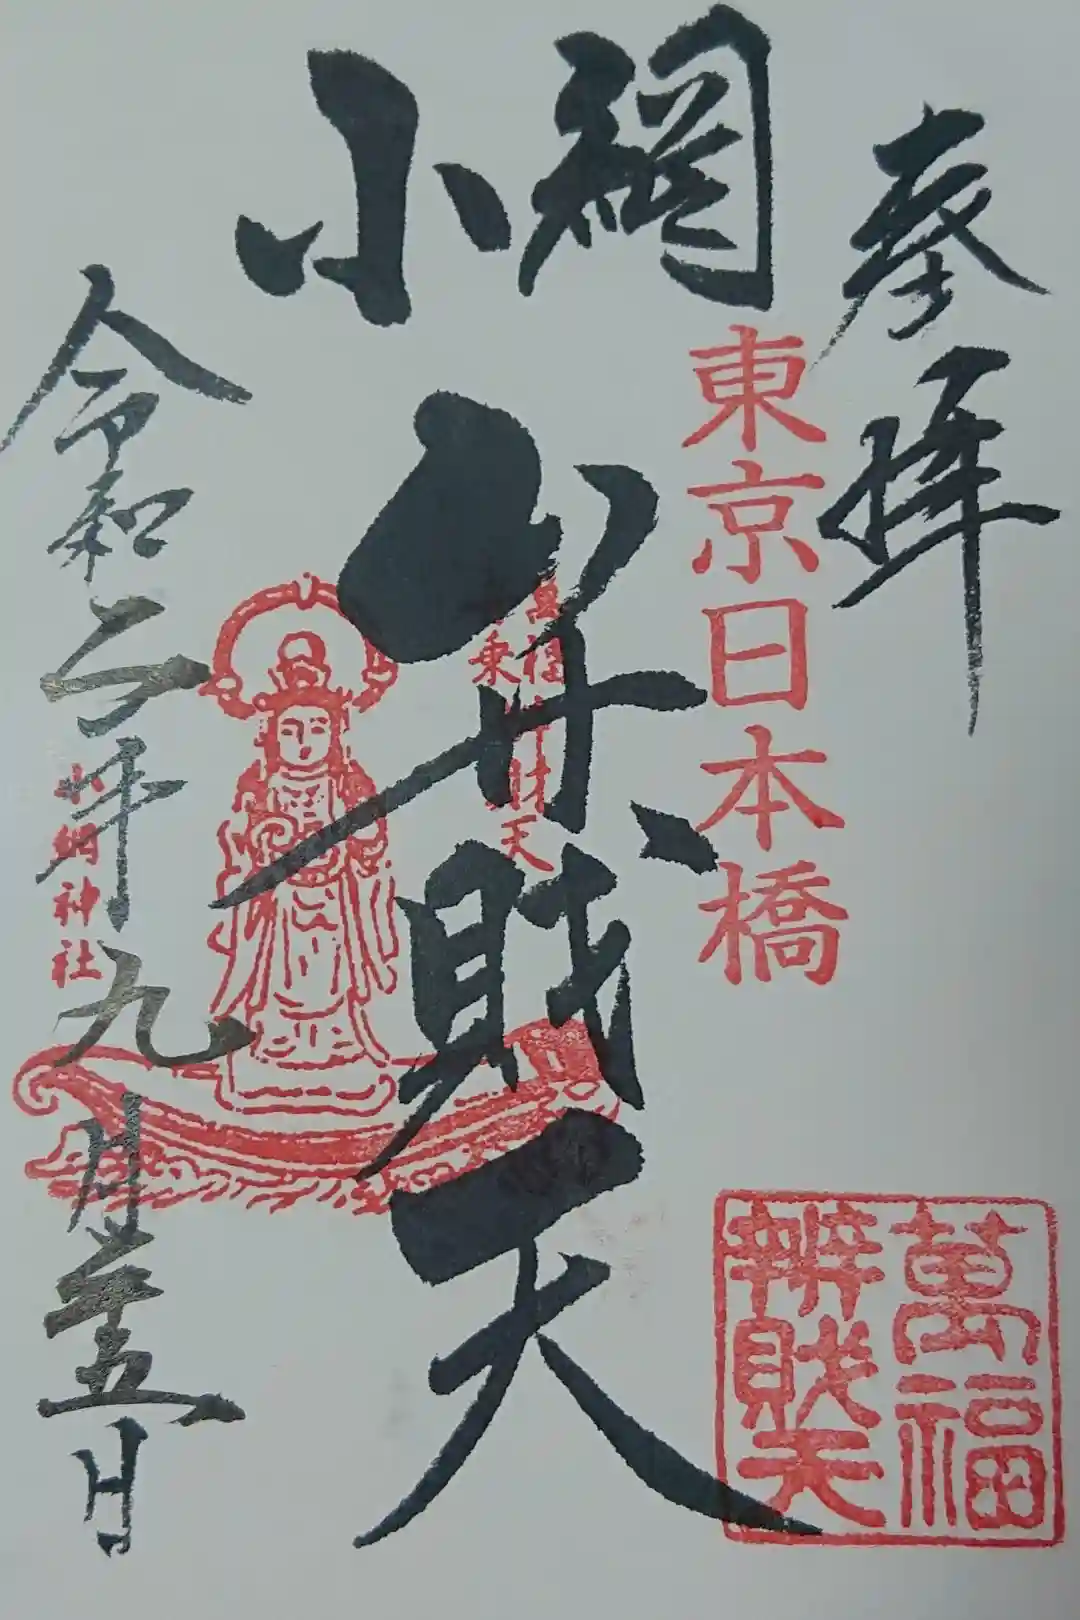 奉拝
東京日本橋
萬福
辨財天
小網
弁財天
萬福
財天
乗
小網神社
令和二年九月廿五日